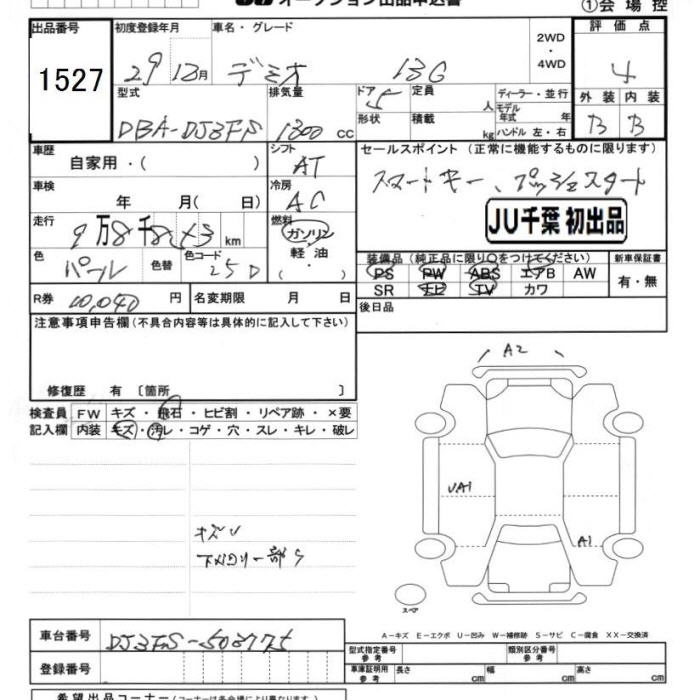 オークション出品申込書
①会場控
出品番号
1527
初度登録年月
29 年 12月
車名・グレード
デミオ 13G
2WD
・
4WD
評価点
4
型式
DBA-DJ3FS
排気量
1300 cc
ドア
5
形状
定員
人
積載
kg
ディーラー・並行
モデル
年式 年
ハンドル 左・右
外装 内装
B B
車歴
自家用・( )
シフト
AT
セールスポイント (正常に機能するものに限ります)
スマートキー、プッシュスタート
JU千葉 初出品
車検
年 月( 日)
冷房
AC
走行
9万8千 km
燃料
ガソリン
軽油
・
色
パール
色替
色コード
25D
装備品 (純正品に限り○をつけてください)
PS PW ABS エアB AW
SR ナビ TV カワ
新車保証書
有・無
R券
10,040 円
名変期限 月 日
後日品
注意事項申告欄 (不具合内容等は具体的に記入して下さい)
修復歴 有 〔箇所 〕
検査員
記入欄
FW キズ・飛石・ヒビ割・リペア跡・×要
内装 キズ・汚レ・コゲ・穴・スレ・キレ・破レ
A2
UA1
A1
キズU
スペア
A-キズ E-エクボ U-凹み W-補修跡 S-サビ C-腐食 XX-交換済
車台番号
DJ3FS-503775
登録番号
型式指定番号
参考
類別区分番号
参考
車庫証明用
参考
長さ cm
幅 cm
高さ cm
希望出品コーナー (コーナーは各会場により異なります)